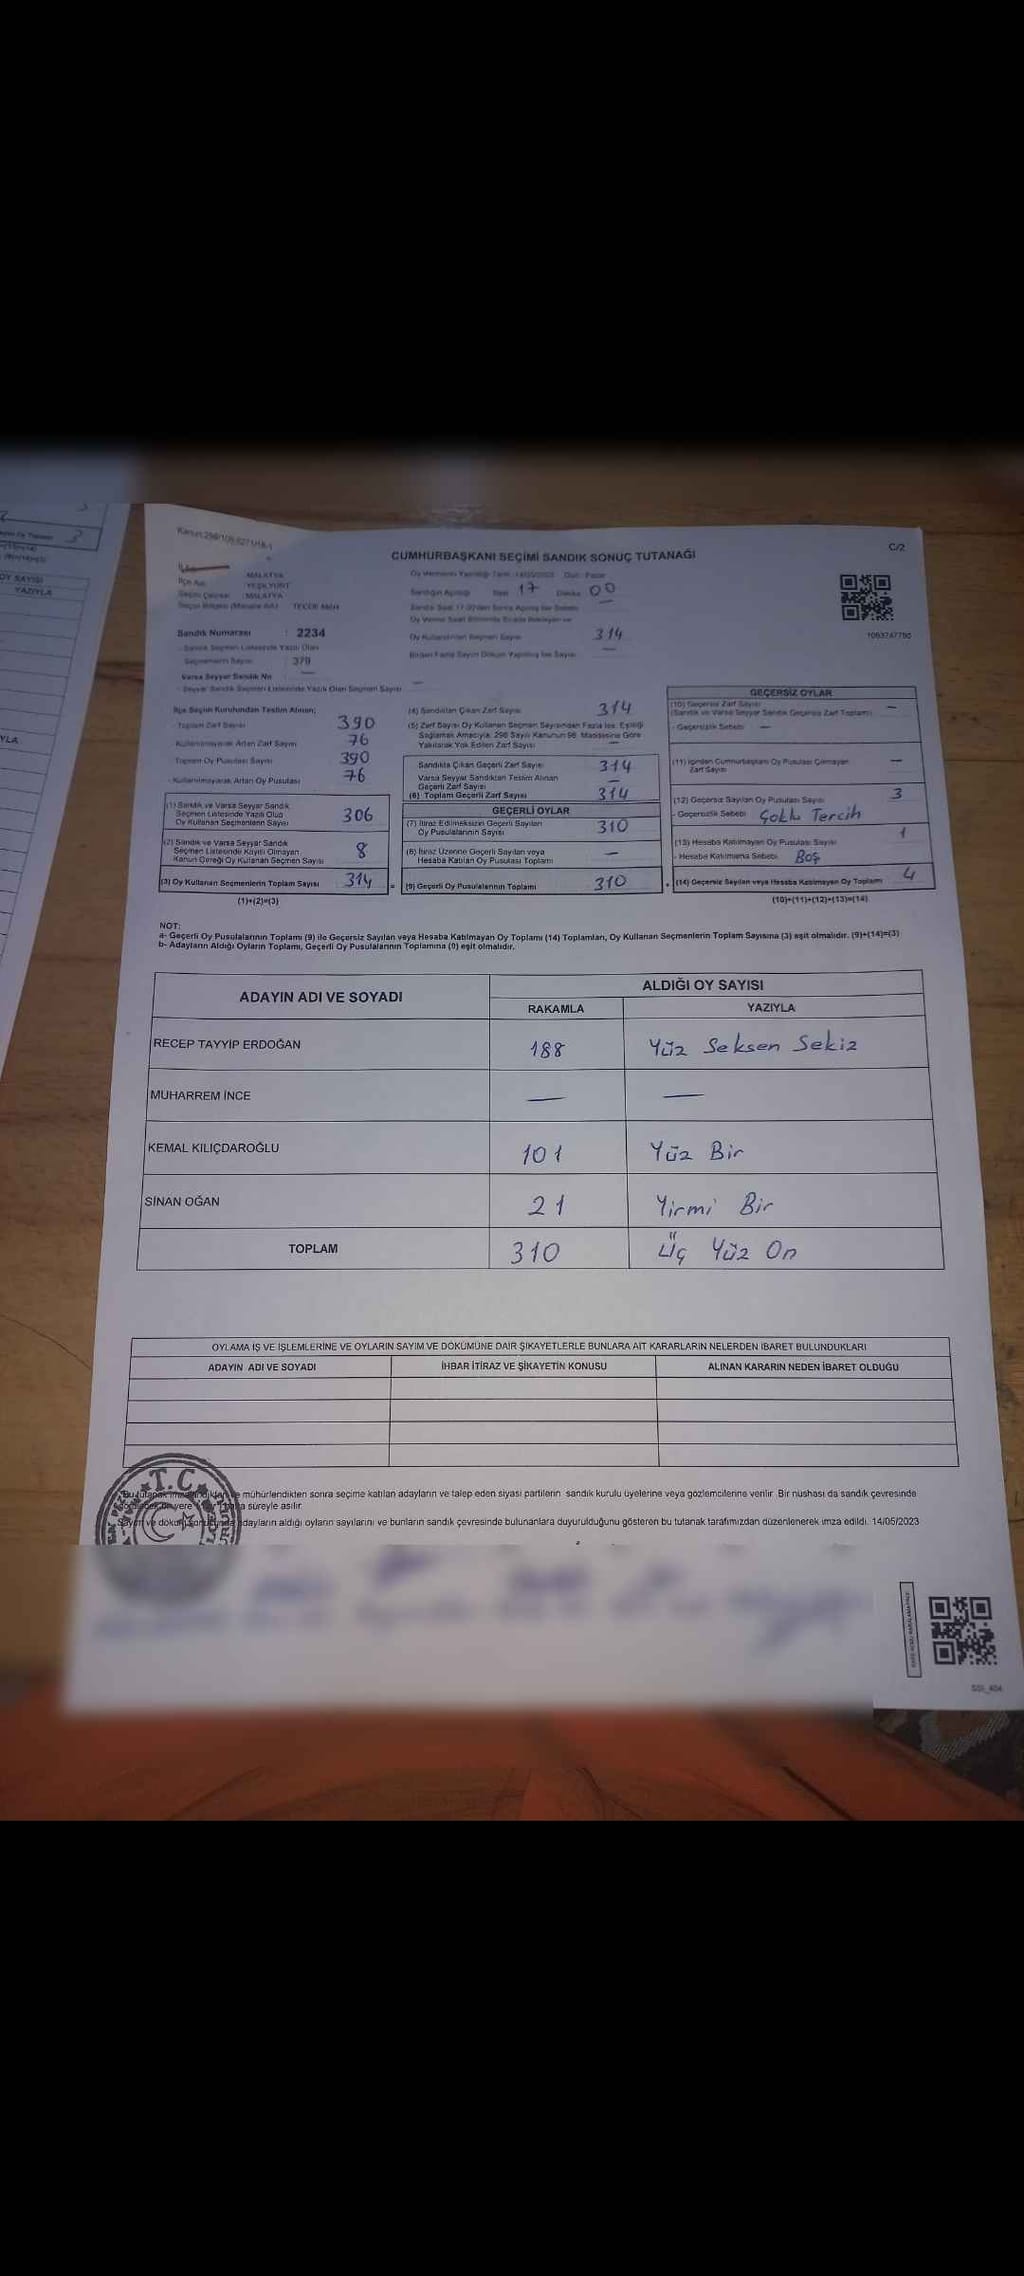 Kanun:298/108,6271/18-1
C/2
CUMHURBAŞKANI SEÇİMİ SANDIK SONUÇ TUTANAĞI
MALATYA
İlçe Adı : YEŞİLYURT
Seçim Çevresi : MALATYA
TECDE MAH.
Oy Vermenin Yapıldığı Tarih :14/05/2023 Gün : Pazar
Sandığın Açıldığı Saat 17 Dakika 00
Sandık Numarası : 2234
Sandık Seçmen Listesinde Yazılı Olan
Seçmenlerin Sayısı : 379
Varsa Seyyar Sandık No : —
- Seyyar Sandık Seçmen Listesinde Yazılı Olan Seçmen Sayısı : —
Oy Kullandırılan Seçmen Sayısı 314
Birden Fazla Sayım Döküm Yapılmış İse Sayısı —
İlçe Seçim Kurulundan Teslim Alınan;
- Toplam Zarf Sayısı 390
- Kullanılmayarak Artan Zarf Sayısı 76
- Toplam Oy Pusulası Sayısı 390
- Kullanılmayarak Artan Oy Pusulası 76
(1) Sandık ve Varsa Seyyar Sandık
Seçmen Listesinde Yazılı Olup
Oy Kullanan Seçmenlerin Sayısı 306
(2) Sandık ve Varsa Seyyar Sandık
Seçmen Listesinde Kaydı Olmayan
Kanun Gereği Oy Kullanan Seçmen Sayısı 8
(3) Oy Kullanan Seçmenlerin Toplam Sayısı 314
(1)+(2)=(3)
(4) Sandıktan Çıkan Zarf Sayısı 314
(5) Zarf Sayısı Oy Kullanan Seçmen Sayısından Fazla İse, Eşitliği
Sağlamak Amacıyla, 298 Sayılı Kanunun 98. Maddesine Göre
Yakılarak Yok Edilen Zarf Sayısı —
Sandıkta Çıkan Geçerli Zarf Sayısı 314
Varsa Seyyar Sandıktan Teslim Alınan
Geçerli Zarf Sayısı —
(6) Toplam Geçerli Zarf Sayısı 314
GEÇERLİ OYLAR
(7) İtiraz Edilmeksizin Geçerli Sayılan
Oy Pusulalarının Sayısı 310
(8) İtiraz Üzerine Geçerli Sayılan veya
Hesaba Katılan Oy Pusulası Toplamı —
(9) Geçerli Oy Pusulalarının Toplamı 310
1063747750
GEÇERSİZ OYLAR
(10) Geçersiz Zarf Sayısı —
(Sandık ve Varsa Seyyar Sandık Geçersiz Zarf Toplamı)
- Geçersizlik Sebebi —
(11) İçinden Cumhurbaşkanı Oy Pusulası Çıkmayan
Zarf Sayısı —
(12) Geçersiz Sayılan Oy Pusulası Sayısı 3
- Geçersizlik Sebebi Çoklu Tercih
(13) Hesaba Katılmayan Oy Pusulası Sayısı 1
- Hesaba Katılmama Sebebi Boş
(14) Geçersiz Sayılan veya Hesaba Katılmayan Oy Toplamı 4
(10)+(11)+(12)+(13)=(14)
NOT:
a- Geçerli Oy Pusulalarının Toplamı (9) ile Geçersiz Sayılan veya Hesaba Katılmayan Oy Toplamı (14) Toplamları, Oy Kullanan Seçmenlerin Toplam Sayısına (3) eşit olmalıdır. (9)+(14)=(3)
b- Adayların Aldığı Oyların Toplamı, Geçerli Oy Pusulalarının Toplamına (9) eşit olmalıdır.
ADAYIN ADI VE SOYADI ALDIĞI OY SAYISI
RAKAMLA YAZIYLA
RECEP TAYYİP ERDOĞAN 188 Yüz Seksen Sekiz
MUHARREM İNCE — —
KEMAL KILIÇDAROĞLU 101 Yüz Bir
SİNAN OĞAN 21 Yirmi Bir
TOPLAM 310 Üç Yüz On
OYLAMA İŞ VE İŞLEMLERİNE VE OYLARIN SAYIM VE DÖKÜMÜNE DAİR ŞİKAYETLERLE BUNLARA AİT KARARLARIN NELERDEN İBARET BULUNDUKLARI
ADAYIN ADI VE SOYADI İHBAR İTİRAZ VE ŞİKAYETİN KONUSU ALINAN KARARIN NEDEN İBARET OLDUĞU
mühürlendikten sonra seçime katılan adayların ve talep eden siyasi partilerin sandık kurulu üyelerine veya gözlemcilerine verilir. Bir nüshası da sandık çevresinde
süreyle asılır.
adayların aldığı oyların sayılarını ve bunların sandık çevresinde bulunanlara duyurulduğunu gösteren bu tutanak tarafımızdan düzenlenerek imza edildi. 14/05/2023
T.C.